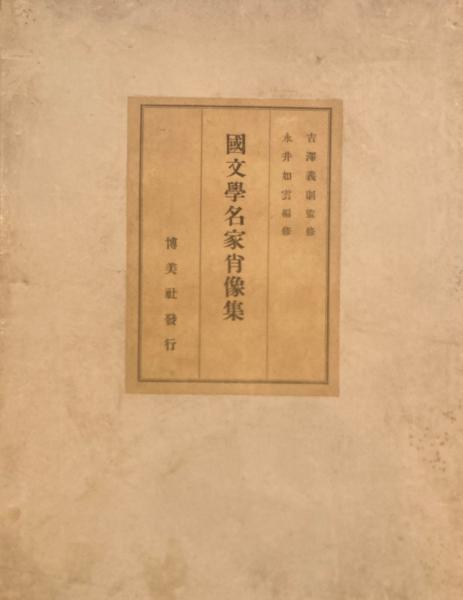 吉澤義則監修
永井如雲編修
國文學名家肖像集
博美社發行